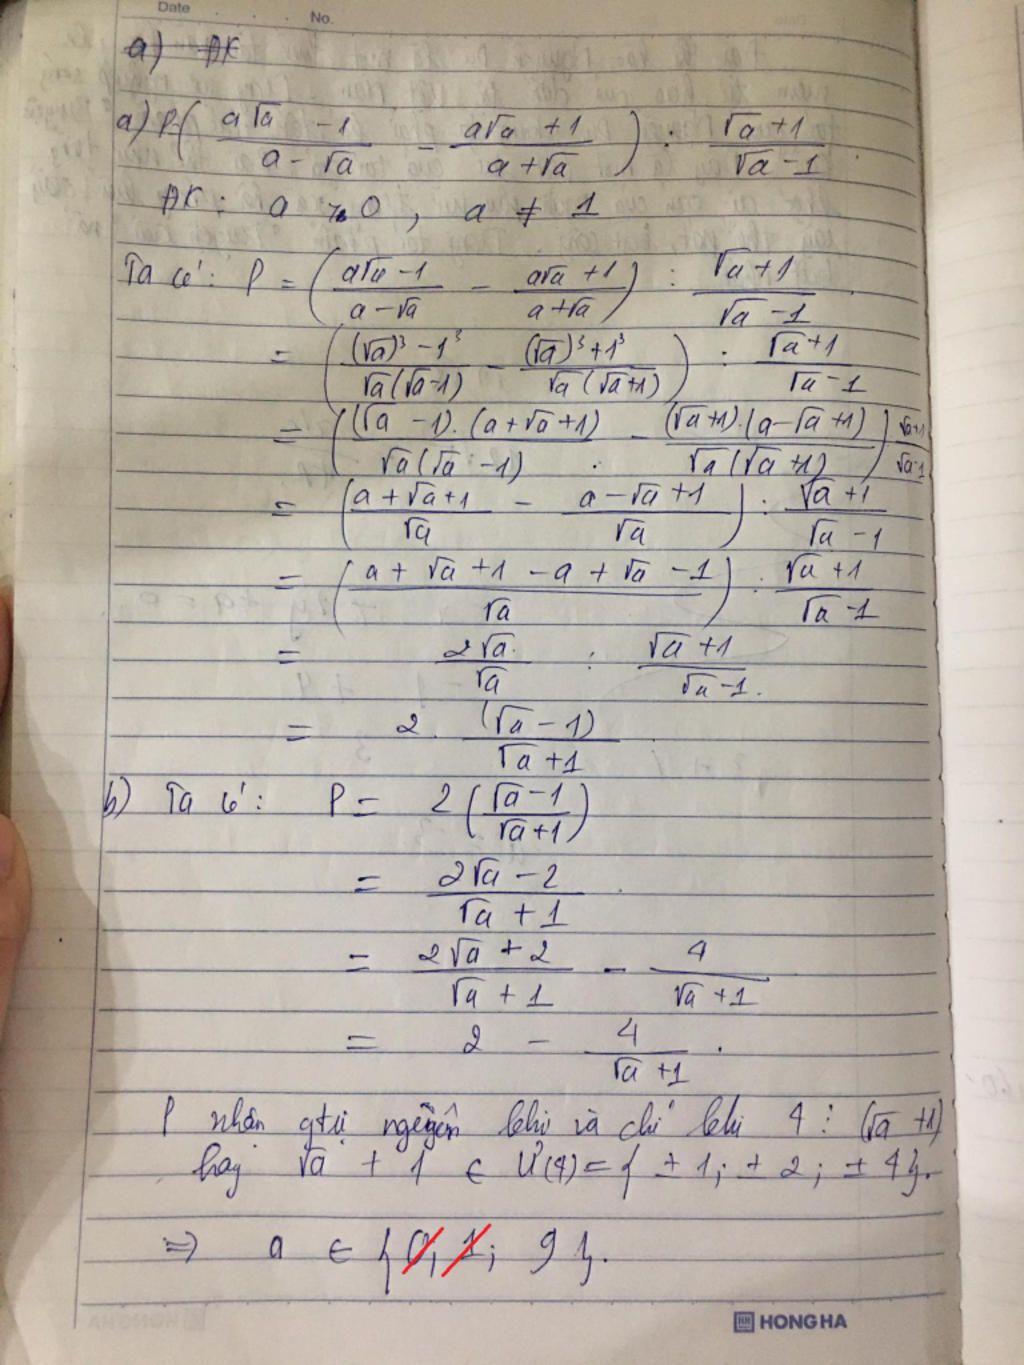 Date
No.
a) ĐK
a) P = ( (a√a - 1)/(a - √a) - (a√a + 1)/(a + √a) ) : (√a + 1)/(√a - 1)
ĐK: a > 0, a ≠ 1
Ta có: P = ( (a√a - 1)/(a - √a) - (a√a + 1)/(a + √a) ) : (√a + 1)/(√a - 1)
= ( ((√a)³ - 1³)/(√a(√a - 1)) - ((√a)³ + 1³)/(√a(√a + 1)) ) : (√a + 1)/(√a - 1)
= ( ((√a - 1).(a + √a + 1))/(√a(√a - 1)) - ((√a + 1).(a - √a + 1))/(√a(√a + 1)) ) (√a + 1)/(√a - 1)
= ( (a + √a + 1)/√a - (a - √a + 1)/√a ) : (√a + 1)/(√a - 1)
= ( (a + √a + 1 - a + √a - 1)/√a ) : (√a + 1)/(√a - 1)
= 2√a/√a : (√a + 1)/(√a - 1).
= 2. (√a - 1)/(√a + 1)
b) Ta có: P = 2 ( (√a - 1)/(√a + 1) )
= (2√a - 2)/(√a + 1)
= (2√a + 2)/(√a + 1) - 4/(√a + 1)
= 2 - 4/(√a + 1).
P nhân gtrị nguyên khi và chỉ khi 4 ⋮ (√a + 1)
hay √a + 1 ∈ Ư(4) = { ± 1; ± 2; ± 4 }.
=> a ∈ { 0; 1; 9 }.
HH HONG HA